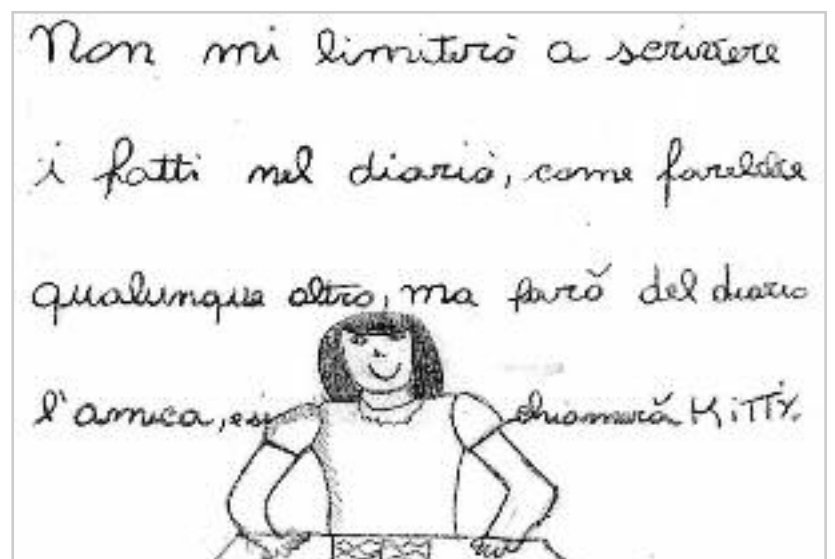 Non mi limiterò a scrivere
i fatti nel diario, come farebbe
qualunque altro, ma farò del diario
l'amica, e si chiamerà Kitty.